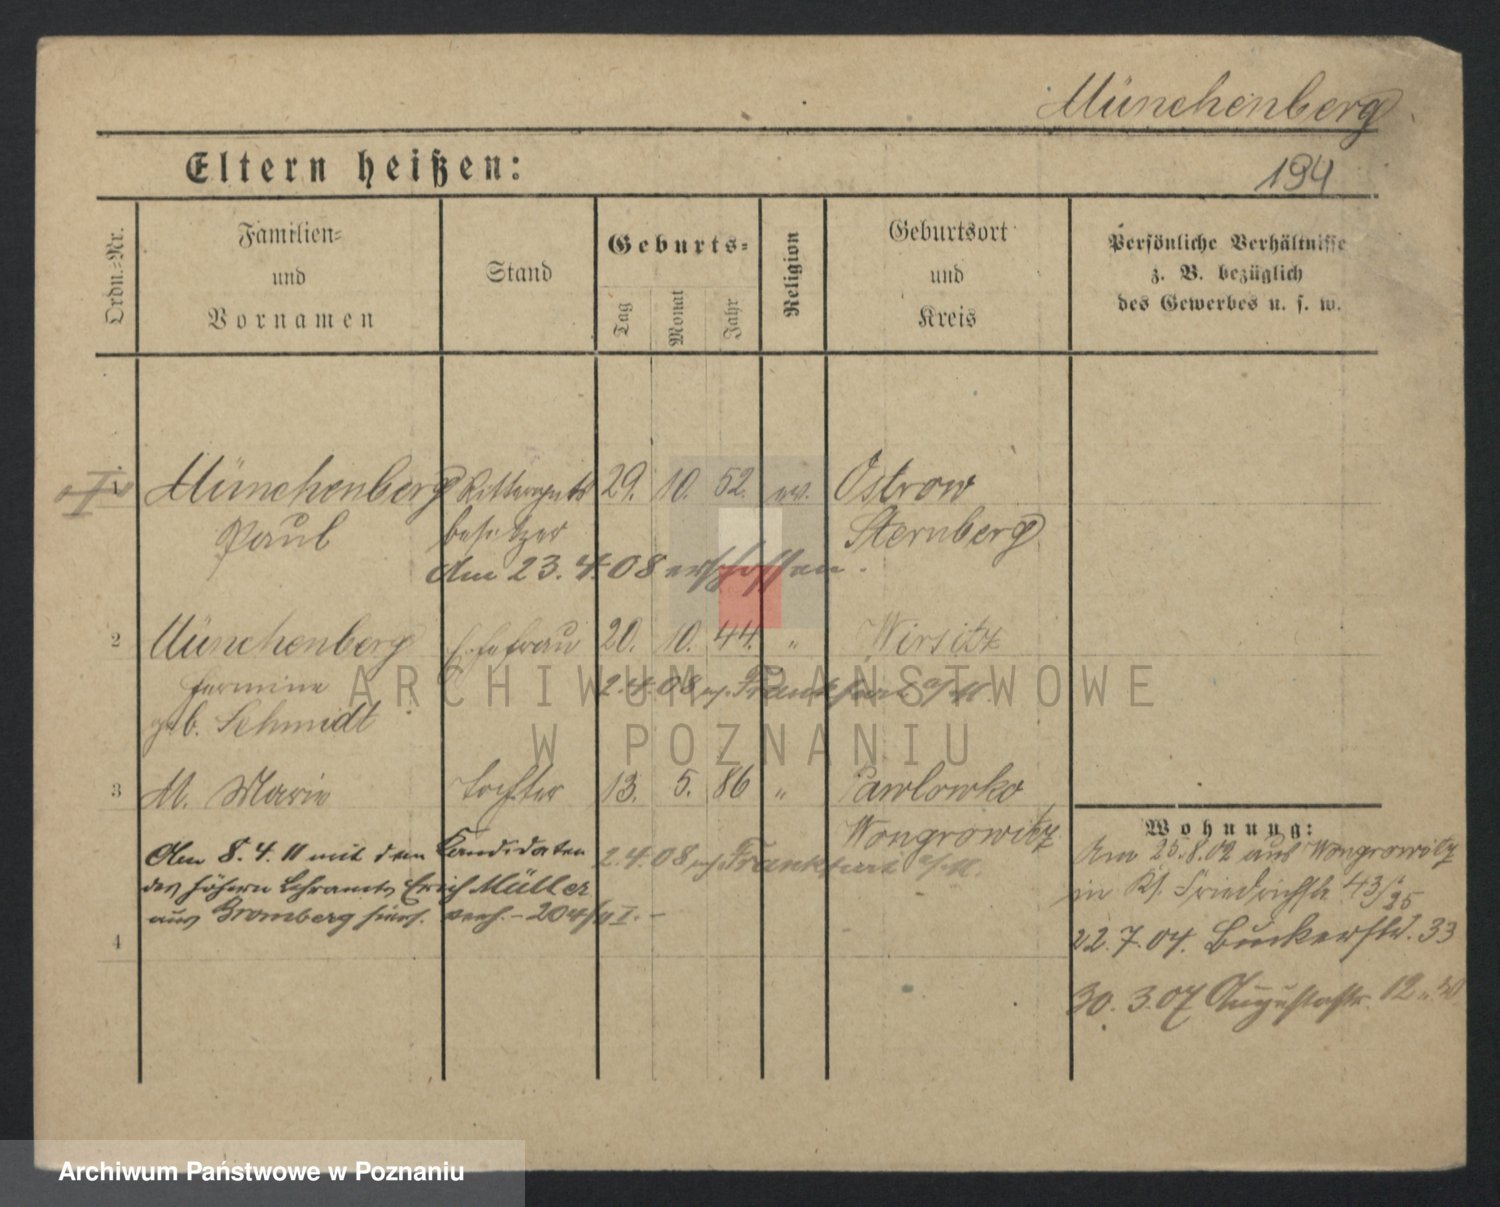 Münchenberg
194
Eltern heißen:
Ordn.-Nr.
Familien-
und
Vornamen
Stand
Geburts-
Tag
Monat
Jahr
Religion
Geburtsort
und
Kreis
Persönliche Verhältnisse
z. B. bezüglich
des Gewerbes u. s. w.
1 Münchenberg Ritterguts 29. 10. 52. ev. Ostrow
Paul besitzer Sternberg
Am 23. 4. 08 erschossen.
2 Münchenberg Ehefrau 20. 10. 44. " Wirsitz
Hermine 2.4.08 n. Frankfurt a/M.
geb. Schmidt
3 M. Marie Tochter 13. 5. 86 " Pawlowko
Wongrowitz
Am 8. 4. 11 mit dem Kandidaten 2.4.08 n. Frankfurt a/M.
des höhern Lehramts Erich Müller
aus Bromberg verh.
4
Wohnung:
Am 25.8.02 aus Wongrowitz
in Friedrichstr 43/
22.7.04. Buckerstr. 33
30.3.07 Augustastr. 12
ARCHIWUM PAŃSTWOWE
W POZNANIU
Archiwum Państwowe w Poznaniu